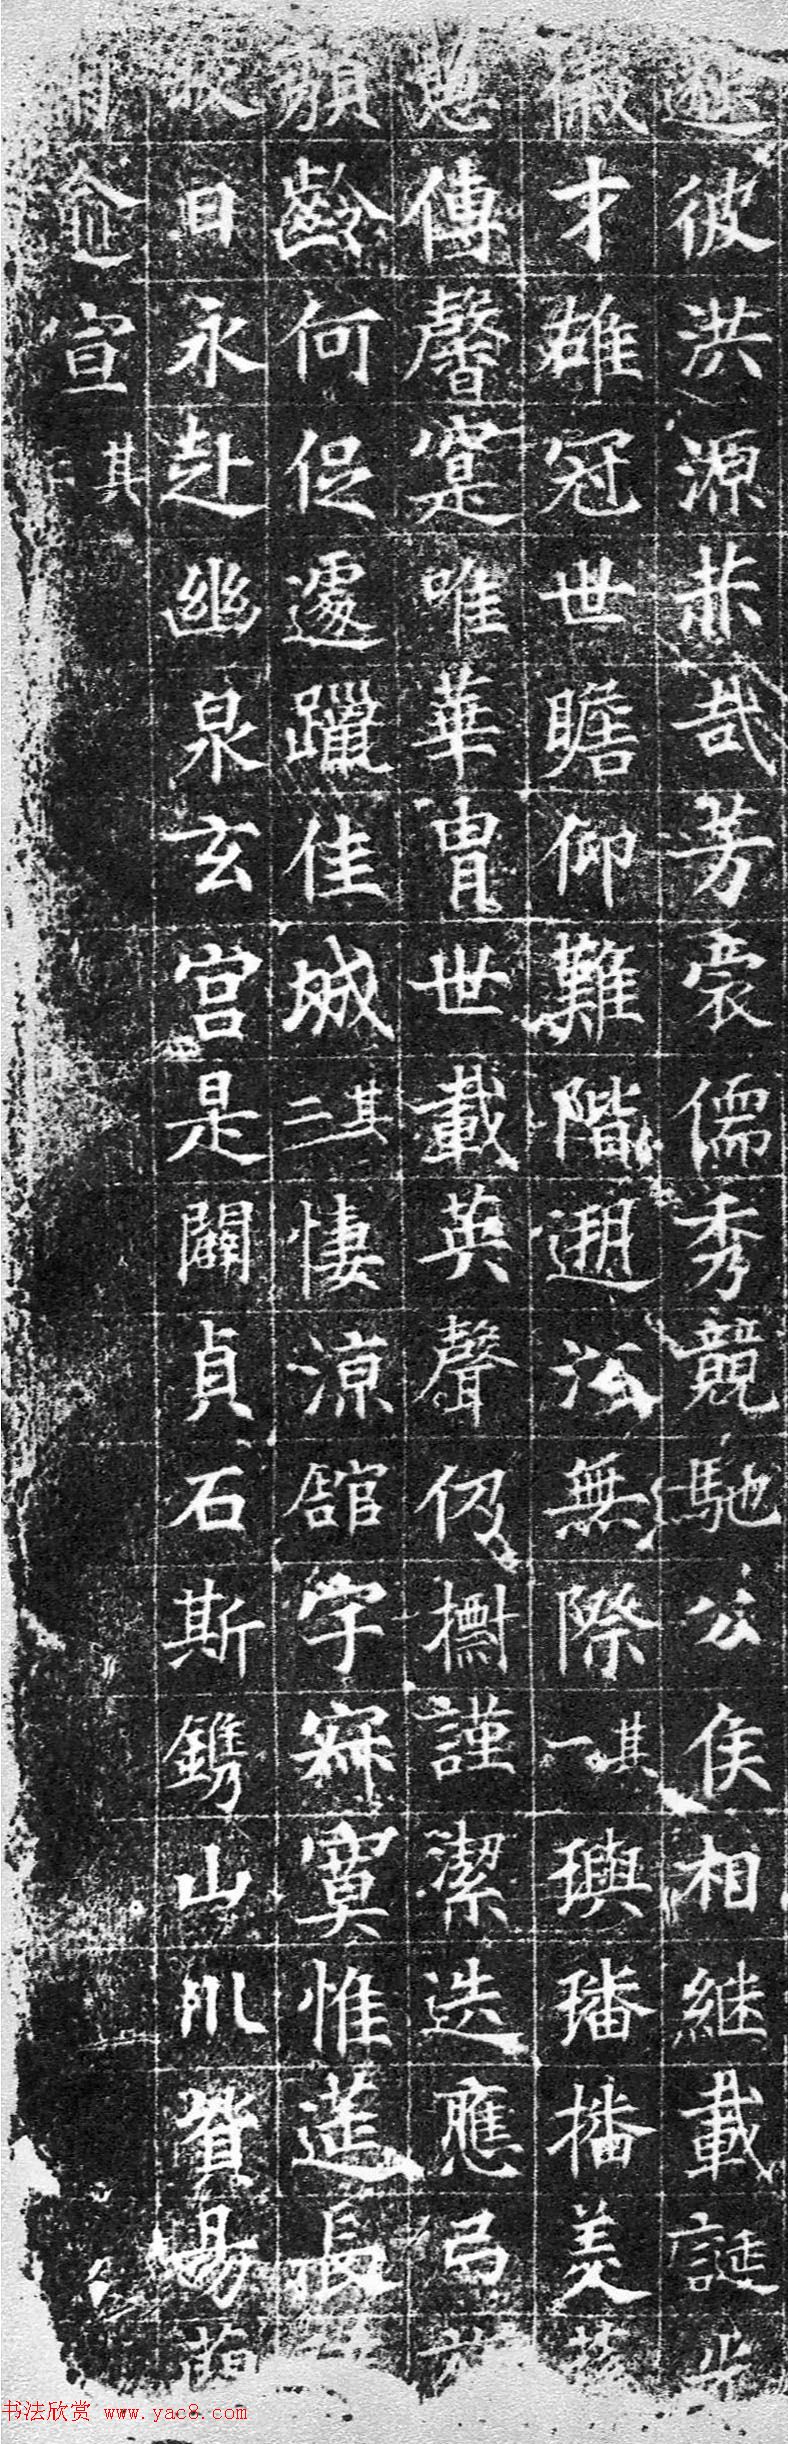 彼洪源恭哉芳裔儒秀競馳公侯相繼載誕
徽才雄冠世瞻仰難階遡沿無際其一璵璠播美
傳馨寔唯華胄世載英聲仍擕謹潔迭應弓
頹齡何促遽躐佳城其二悽涼舘宇寂寞惟筵長
日永赴幽泉玄宮是闢貞石斯鐫山川貿易
僉宣其
书法欣赏 www.yac8.com